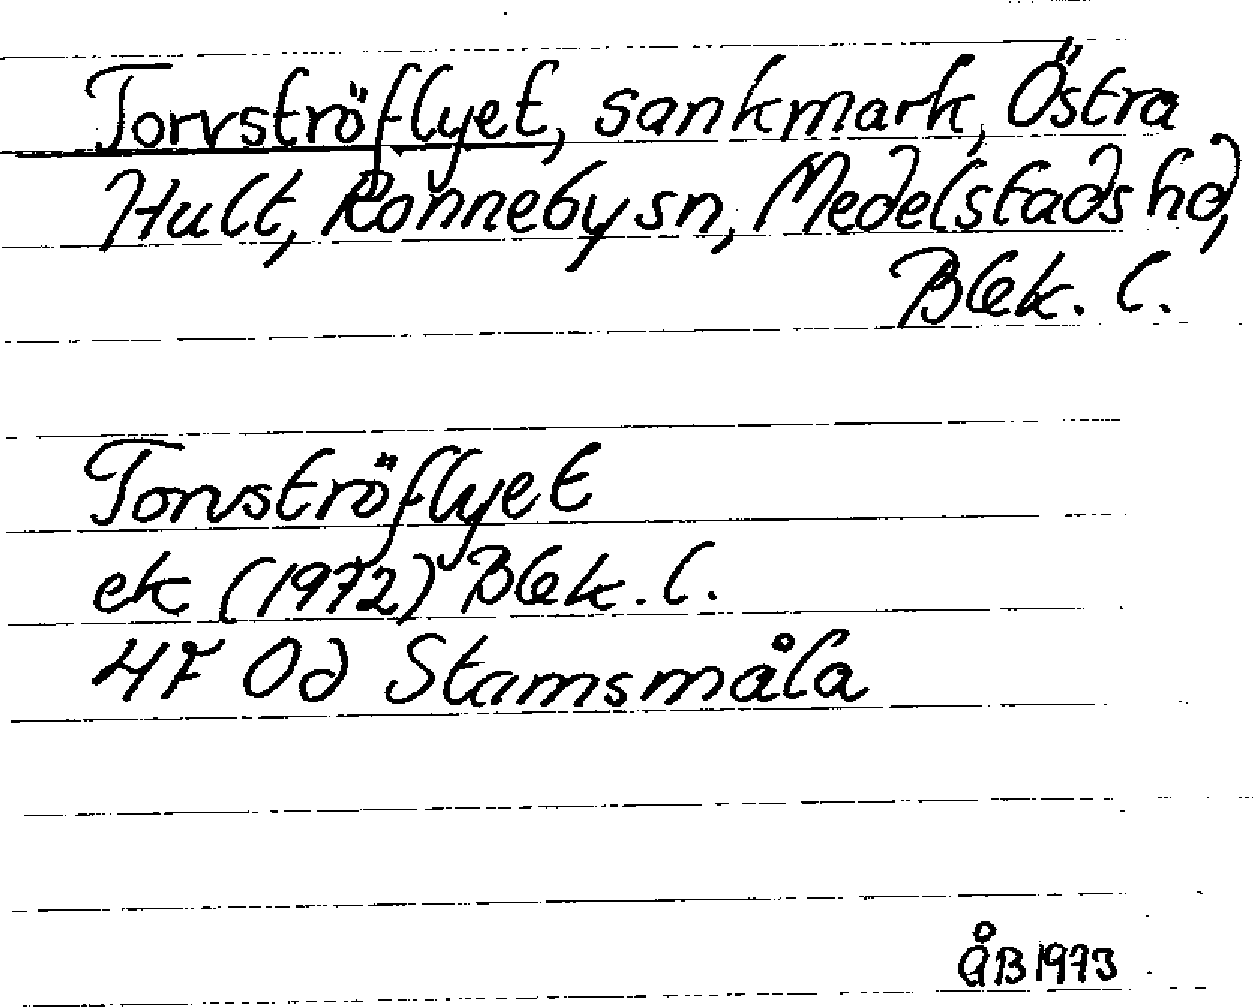 Torvströflyet, sankmark, Östra
Hult, Ronneby sn, Medelstads hd,
Blek. l.
Torvströflyet
ek (1972) Blek. l.
4F 0d Stamsmåla
ÅB 1973